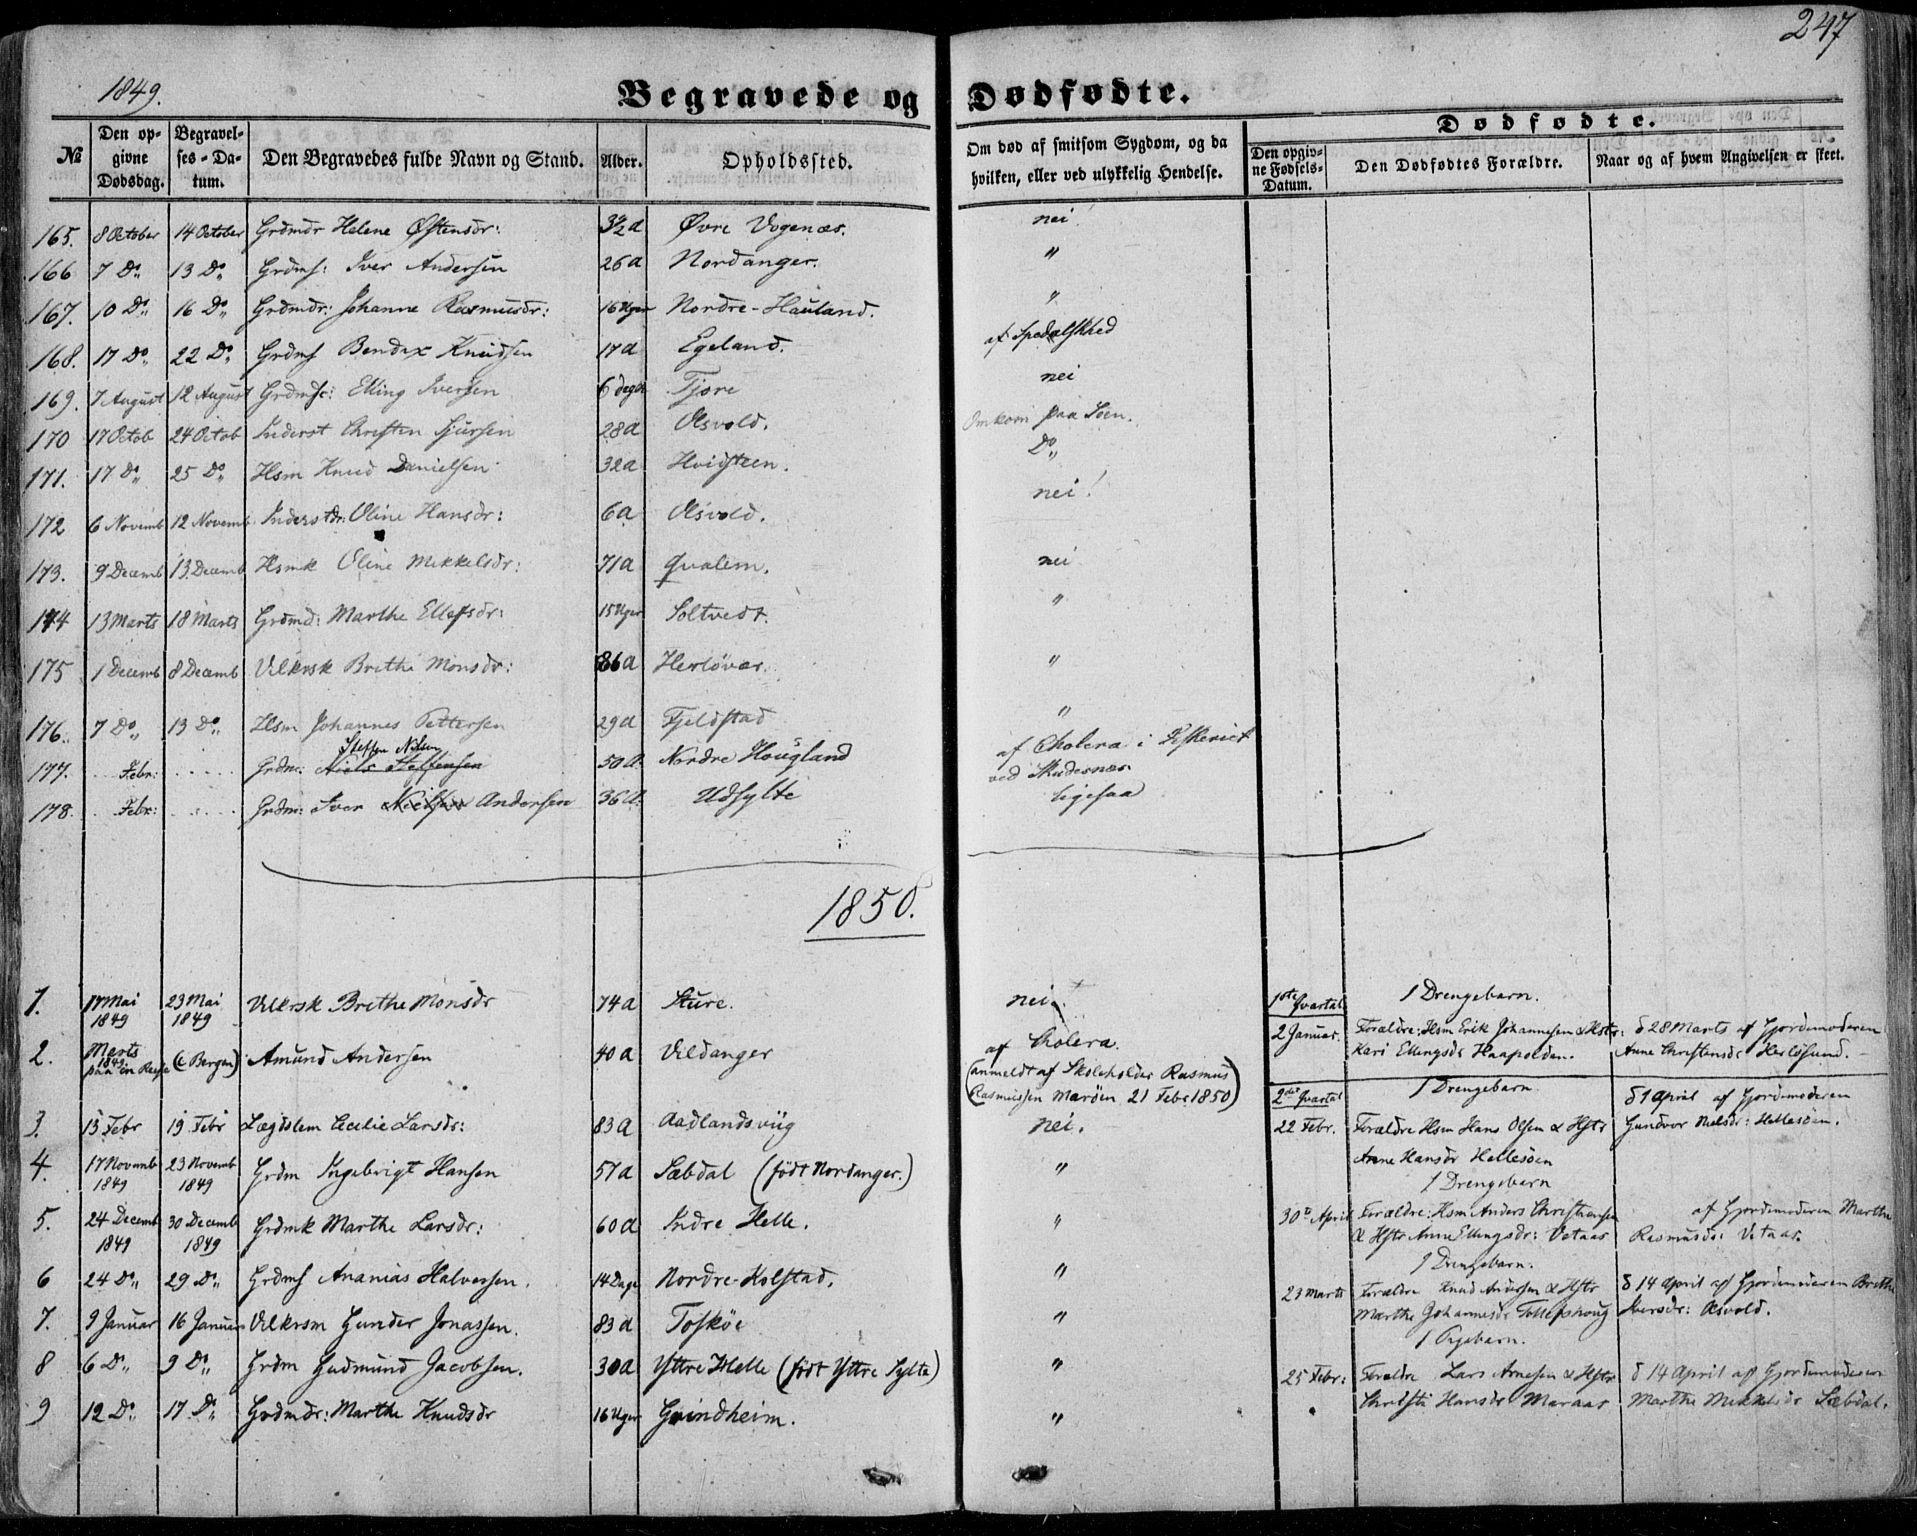 247
1849.
Begravede og Dødfødte.
№
Den opgivne Dødsdag.
Begravelses-Datum.
Den Begravedes fulde Navn og Stand.
Alder.
Opholdssted.
Om død af smitsom Sygdom, og da hvilken, eller ved ulykkelig Hendelse.
Dødfødte.
Den opgivne Fødsels-Datum.
Den Dødfødtes Forældre.
Naar og af hvem Angivelsen er skeet.
165. 8 October 14 October Grdmdr Helene Østensdr: Øvre Vogenæs. nei
166 7 Do„ 13 Do„ Grdms: Iver Andersen 26 a Nordanger. „
167. 10 Do„ 16 Do„ Grdmdr: Johanne Rasmusdr: 16 Uger Nordre-Hauland. „
168. 17 Do„ 22 Do„ Grdms Bendix Knudsen 17 a Egeland. af Spedalskhed
169. 7 August 12 August Grdms: Elling Iversen 6 dage Tjøre nei
170 17 Octob 24 Octob Inderst Christen Sjursen 28 a Olsvold. Omkom paa Søen.
171. 17 Do„ 25 Do„ Hsm Knud Danielsen 32 a Hvidsteen. Do„
172 6 Novemb 12 Novemb Inderstdr: Oline Hansdr: 6 a Olsvold. nei!
173. 9 Decemb 13 Decemb Hsmk Oline Mikkelsdr: 71 a Qvalem. nei
174 13 Marts 18 Marts Grdmd: Marthe Ellefsdr: 15 Uger Soltvedt. „
175 1 Decemb 8 Decemb Vilkrsk Brithe Monsdr: 86 a Herløvær. „
176. 7 Do„ 13 Do„ Hsm Johannes Pettersen 29 a Fjeldstad „
Steffen Nilsen
177. .. Febr: ..... Grdm: Niels Steffensen 50 a. Nordre Hougland af Cholera i Fiskeriet
ved Skudesnæs.
178. .. Febr: ..... Grdm: Iver Nielsen Andersen 36 a. Udsylte ligesaa
1850.
1. 17 Mai 1849 23 Mai 1849 Vilkrsk Brithe Monsdr 74 a Sture. nei.
2. Marts 1849 paa en Reise (i Bergen) Amund Andersen 40 a Vildanger af Cholera.
(anmeldt af Skoleholder Rasmus
Rasmussen Marøen 21 Febr 1850)
3. 15 Febr 19 Febr Lægdslem Cecilie Larsdr: 83 a Aadlandsviig nei.
4. 17 Novemb 1849 23 Novemb 1849 Grdm Ingebrigt Hansen 51 a Sæbdal (født Nordanger.) „
5. 24 Decemb 1849 30 Decemb 1849 Grdmk Marthe Larsdr: 60 a Indre Helle. „
6 24 Do„ 29 Do„ Grdms Ananias Halversen. 14 Dage Nordre-Kolstad. „
7. 9 Januar 16 Januar Vilkrsm Gunder Jonassen. 83 a Toskøe „
8 6 Do„ 9 Do„ Grdm Gudmund Jacobsen. 30 a Yttre Helle (født Yttre Sylte) „
9 12 Do„ 17 Do„ Grdmdr: Marthe Knudsdr 16 Uger Grindheim. „
1ste Qvartal
1 Drengebarn.
2 Januar. Forældre: Hsm Erik Johannesen & Hstr: d 28 Marts af Gjordemoderen
Kari Ellingsdr Haapolden. Anne Christensdr Herløsund.
2det Qvartal
1 Drengebarn.
22 Febr. Forældre Hsm Hans Olsen & Hstr d 1 April af Gjordemoderen
Anne Hansdr Hellesøen Gundvor Nielsdr: Hellesøen.
1 Drengebarn
30te April Forældre: Hsm Anders Christiansen af Gjordemoderen Marthe
& Hstr Anne Ellingsdr: Vetaas Rasmusdr Vetaas.
1 Drengebarn.
23 Marts Forældre Knud Andersen & Hstr d 14 April af Gjordemoderen Brithe
Marthe Johannesdr Tollefshoug Iversdr: Olsvold.
1 Pigebarn.
25 Febr: Forældre Lars Arnesen & Hstr d 14 April af Gjordemoderen
Christi Hansdr Maraas Marthe Mikkelsdr Sæbdal.